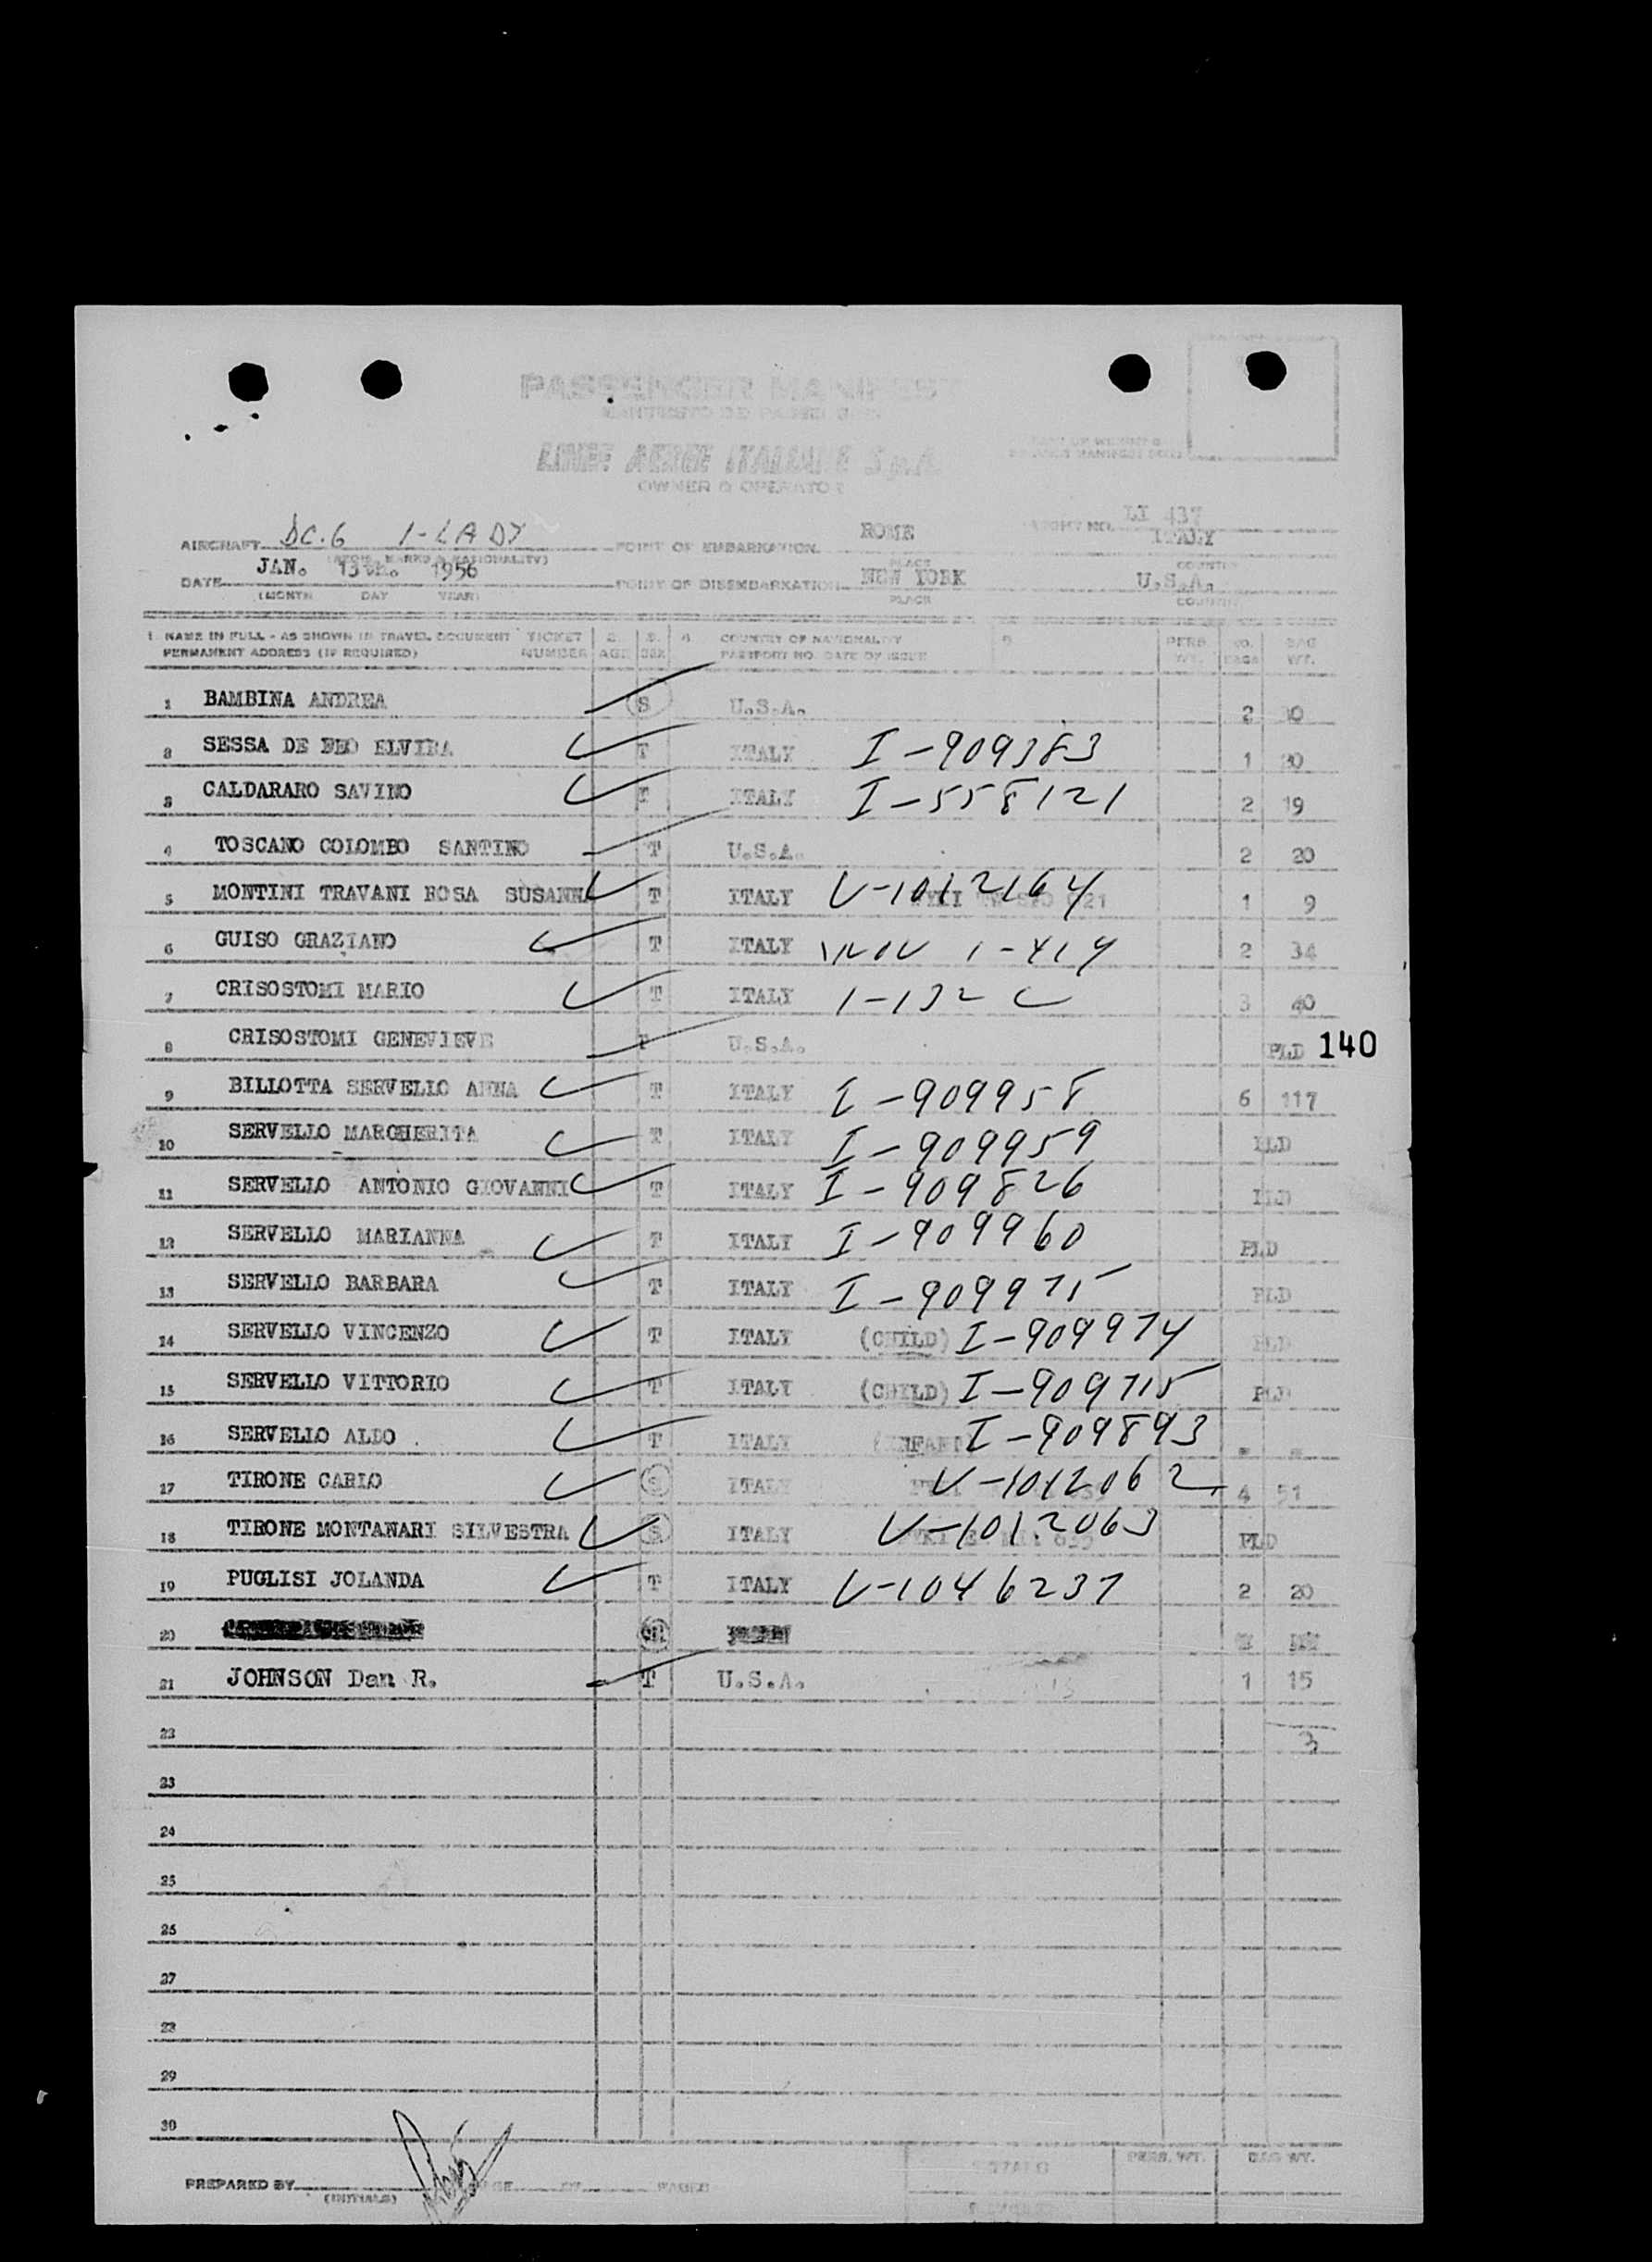 PASSENGER MANIFEST
LINEE AEREE ITALIANE S.p.A.
OWNER O OPERATOR
AIRCRAFT DC.6 I-LADY POINT OF EMBARKATION ROME FLIGHT NO. LI 437 ITALY
(MARKS & NATIONALITY) PLACE COUNTRY
DATE JAN. 13th. 1956 POINT OF DISEMBARKATION NEW YORK U.S.A.
(MONTH DAY YEAR) PLACE COUNTRY
1. NAME IN FULL - AS SHOWN IN TRAVEL DOCUMENT TICKET 2. 3. 4. COUNTRY OF NATIONALITY 5. PERS. NO. BAG
PERMANENT ADDRESS (IF REQUIRED) NUMBER AGE SEX PASSPORT NO. DATE OF ISSUE WT. BAGS WT.
1 BAMBINA ANDREA S U.S.A. 2
2 SESSA DE FEO ELVIRA T ITALY I-909383 1 20
3 CALDARARO SAVINO T ITALY I-558121 2 19
4 TOSCANO COLOMBO SANTINO T U.S.A. 2 20
5 MONTINI TRAVANI ROSA SUSANNA T ITALY V-1012164 1 9
6 GUISO GRAZIANO T ITALY 2 34
7 CRISOSTOMI MARIO T ITALY 3 40
8 CRISOSTOMI GENEVIEVE T U.S.A. PLD 140
9 BILLOTTA SERVELLO ANNA T ITALY I-909958 6 117
10 SERVELLO MARGHERITA T ITALY I-909959 PLD
11 SERVELLO ANTONIO GIOVANNI T ITALY I-909826 PLD
12 SERVELLO MARIANNA T ITALY I-909960 PLD
13 SERVELLO BARBARA T ITALY I-909975 PLD
14 SERVELLO VINCENZO T ITALY (CHILD) I-909974 PLD
15 SERVELLO VITTORIO T ITALY (CHILD) I-909715 PLD
16 SERVELLO ALDO T ITALY (INFANT I-909893 = =
17 TIRONE CARLO S ITALY V-1012062 4 51
18 TIRONE MONTANARI SILVESTRA S ITALY V-1012063 PLD
19 PUGLISI JOLANDA T ITALY V-1046237 2 20
20
21 JOHNSON Dan R. T U.S.A. 1 15
22
23
24
25
26
27
28
29
30
PREPARED BY PAGES PERS. WT. BAG WT.
(INITIALS) TOTALS